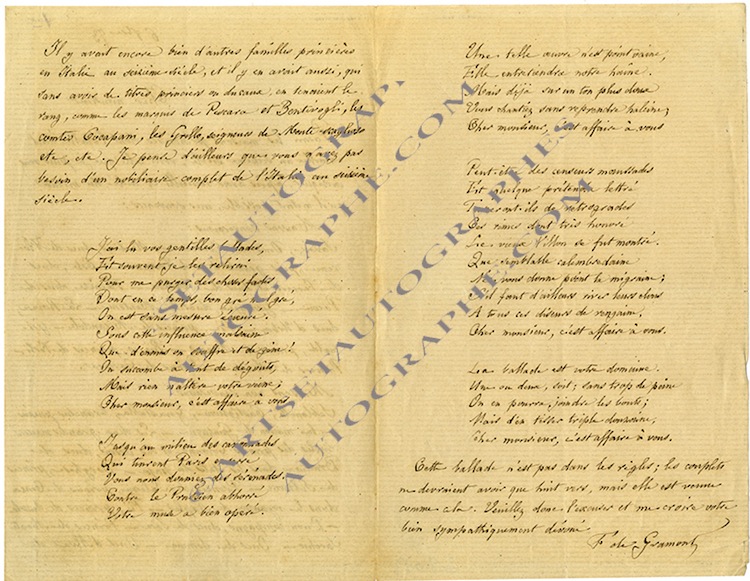 Il y avait encore bien d'autres familles princières
en Italie au seizième siècle, et il y en avait aussi, qui
sans avoir de titres princiers ou ducaux, en tenaient le
rang, comme les marquis de Pescara et Bentivogli, les
comtes Cocapani, les Grillo, seigneurs de Monte
etc, etc. Je pense d'ailleurs que vous n'avez pas
besoin d'un nobiliaire complet de l'Italie au seizième
siècle.
J'ai lu vos gentilles ballades,
Et souvent je les relirai
Pour me purger des choses fades
Dont en ce temps, bon gré mal gré,
On est sans mesure écœuré.
Sous cette influence malsaine
Que d'ennuis on souffre et de gêne!
On succombe à tant de dégoûts,
Mais rien n'altère votre veine;
Cher monsieur, c'est affaire à vous
Jusqu'au milieu des canonnades
Qui tinrent Paris enserré
Vous nous donniez des sérénades.
Contre le Prussien abhorré
Votre muse a bien opéré.
Une telle œuvre n'est point vaine,
Elle entretiendra notre haine.
Mais déjà sur un ton plus doux
Vous chantez sans reprendre haleine;
Cher monsieur, c'est affaire à vous
Peut-être des censeurs maussades
Et quelque prétendu lettré
Traiteront-ils de rétrogrades
Ces rimes dont très honoré
Le vieux Villon se fut montré.
Que semblable calembredaine
Ne vous donne point la migraine;
Il faut d'ailleurs river leurs clous
A tous ces diseurs de rengaine,
Cher monsieur, c'est affaire à vous.
La ballade est votre domaine.
Une ou deux, soit; sans trop de peine
On en pourra joindre les bouts;
Mais d'en tisser triple douzaine,
Cher monsieur, c'est affaire à vous.
Cette ballade n'est pas dans les règles; les couplets
ne devraient avoir que huit vers, mais elle est venue
comme cela. Veuillez donc l'excuser et me croire votre
bien sympathiquement dévoué
F. de Gramont
ARTSETAUTOGRAPHES.COM
AUTOGRAPHE.COM